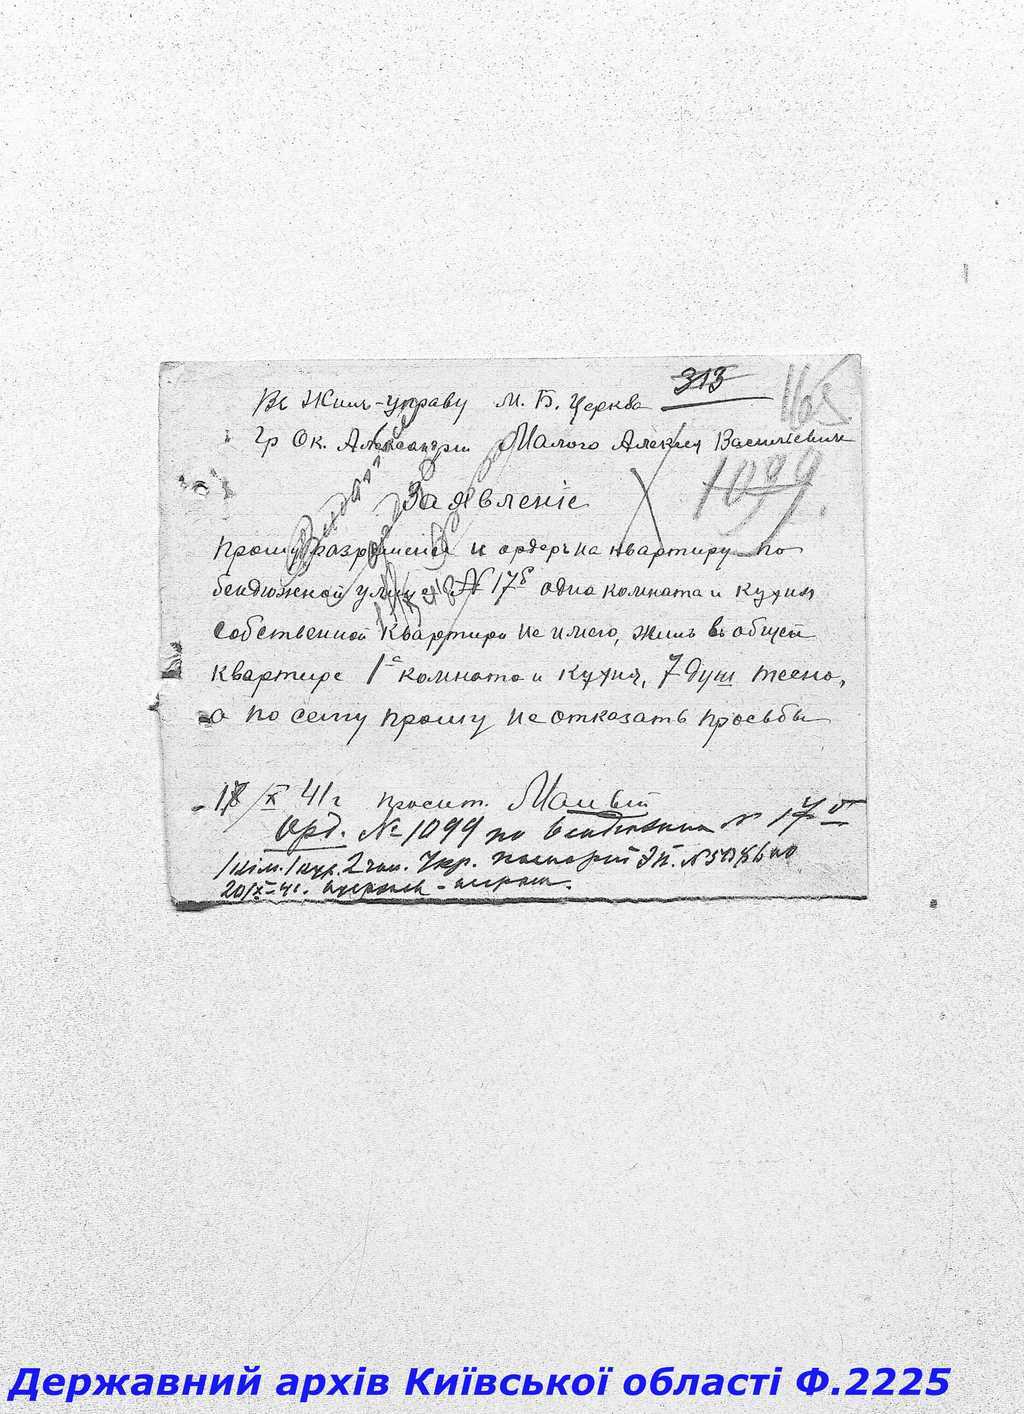 313
165
Въ Жил-управу м. Б. Церква
Гр Ок. Александрии Малого Алексея Васильевич
1099
Заявленіе
Прошу разрешения и ордерь на квартиру по
бендюжной улице № 17б одна комната и кухня
собственной квартири не имею, жиль въ общей
квартире 1а комната и кухня, 7 душ тесно,
а по сему прошу не отказать просьбы
18/X 41 г просит. Малый
Орд. № 1099 по № 17б
1 кім. 1 кух. 2 чол. Укр. паспорт
20/X-41.
Державний архів Київської області Ф.2225